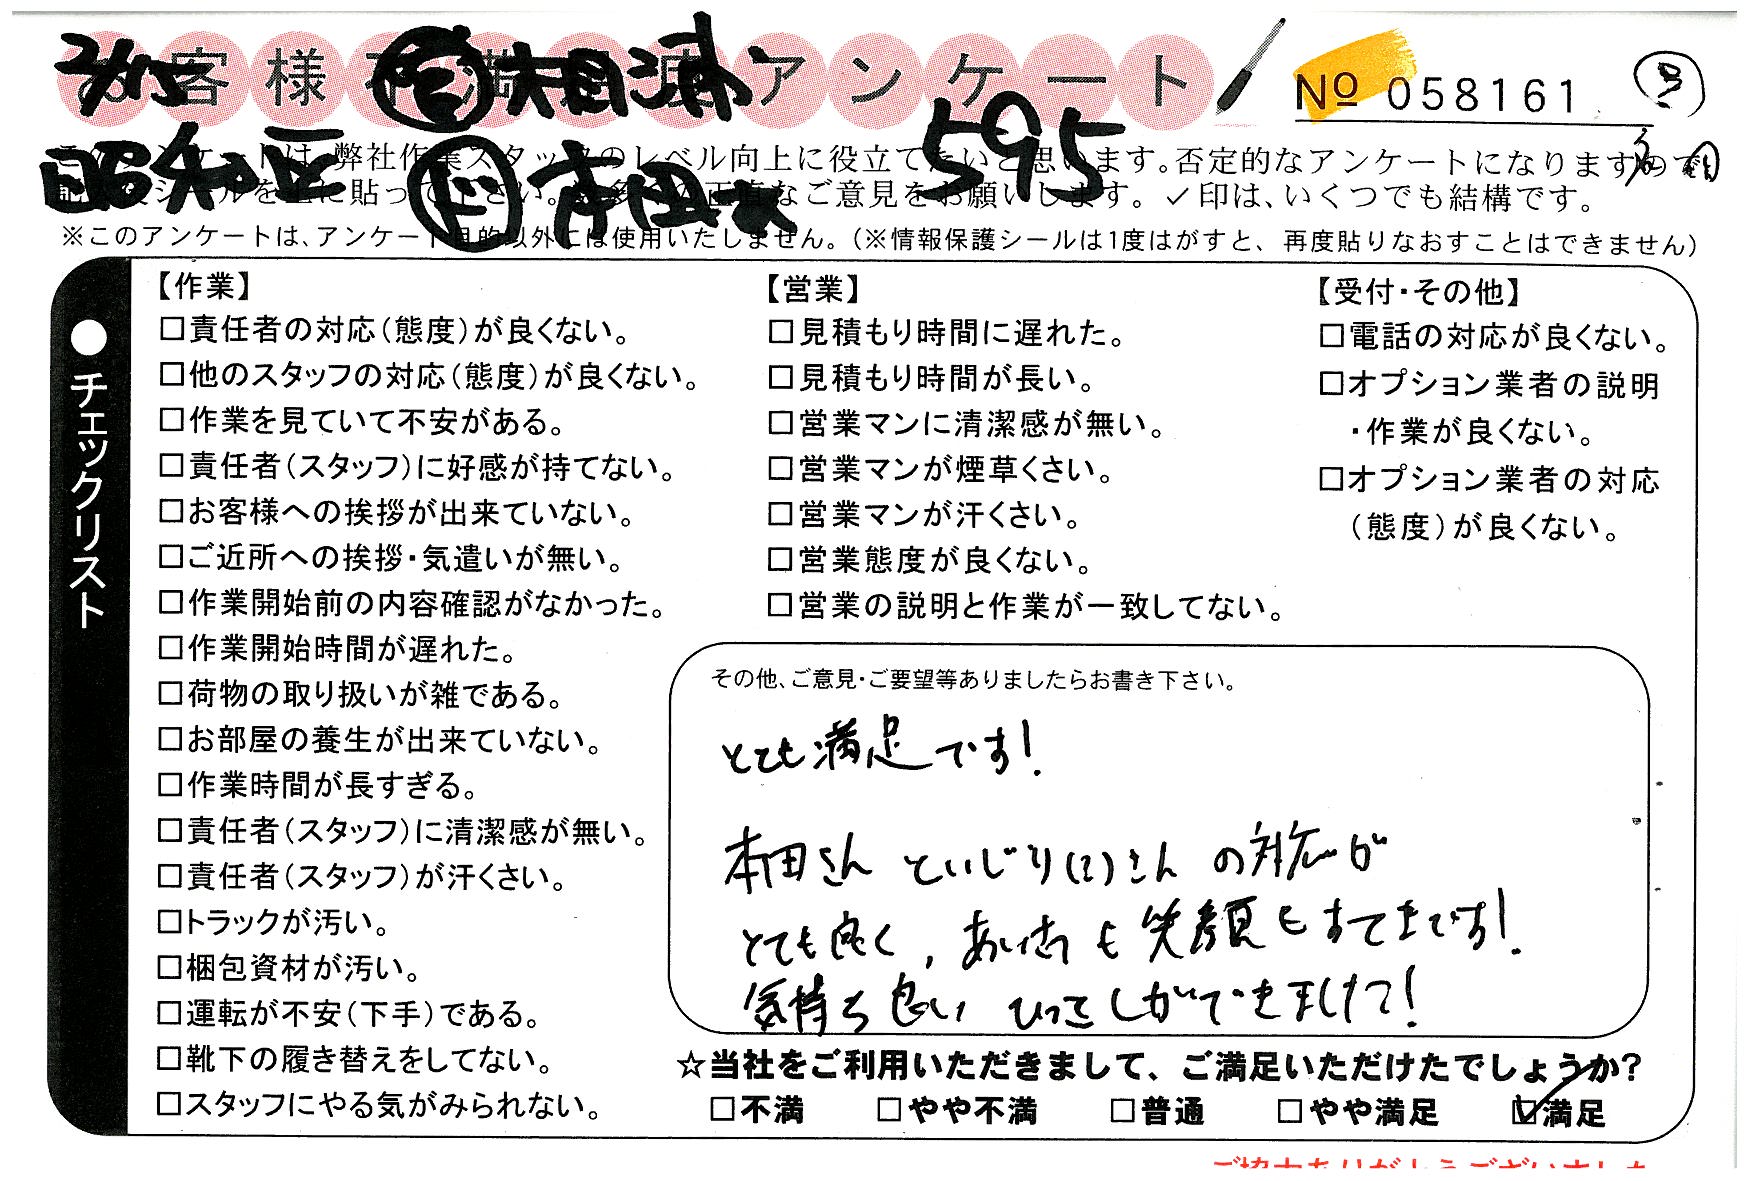 お客様不満足度アンケート
No 058161
2/15
595
昭和区
このアンケートは、弊社作業スタッフのレベル向上に役立てたいと思います。否定的なアンケートになりますので
シールを上に貼って下さい。数多くの正直なご意見をお願いします。✓印は、いくつでも結構です。
※このアンケートは、アンケート目的以外には使用いたしません。(※情報保護シールは1度はがすと、再度貼りなおすことはできません)
●チェックリスト
【作業】
□責任者の対応(態度)が良くない。
□他のスタッフの対応(態度)が良くない。
□作業を見ていて不安がある。
□責任者(スタッフ)に好感が持てない。
□お客様への挨拶が出来ていない。
□ご近所への挨拶・気遣いが無い。
□作業開始前の内容確認がなかった。
□作業開始時間が遅れた。
□荷物の取り扱いが雑である。
□お部屋の養生が出来ていない。
□作業時間が長すぎる。
□責任者(スタッフ)に清潔感が無い。
□責任者(スタッフ)が汗くさい。
□トラックが汚い。
□梱包資材が汚い。
□運転が不安(下手)である。
□靴下の履き替えをしてない。
□スタッフにやる気がみられない。
【営業】
□見積もり時間に遅れた。
□見積もり時間が長い。
□営業マンに清潔感が無い。
□営業マンが煙草くさい。
□営業マンが汗くさい。
□営業態度が良くない。
□営業の説明と作業が一致してない。
【受付・その他】
□電話の対応が良くない。
□オプション業者の説明
・作業が良くない。
□オプション業者の対応
(態度)が良くない。
その他、ご意見・ご要望等ありましたらお書き下さい。
とても満足です!
本田さんといじり(?)さんの対応が
とても良く、あいさつも笑顔もすてきです!
気持ち良いひっこしができました!
☆当社をご利用いただきまして、ご満足いただけたでしょうか?
□不満 □やや不満 □普通 □やや満足 ☑満足
ご協力ありがとうございました